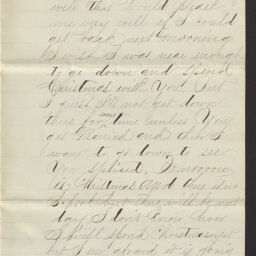 well that would please
me very well if I could
get back next morning
I wish I was near enough
to go down and spend
Christmas with You. but
I guess I'll not get down
there for some time unless You
get Married and then I
want to go down to see
You spliced. Tomorrow
is Christmas and there is no
school but there will be next
day I don't know how
I will spend Christmas yet
but I am afraid it is going